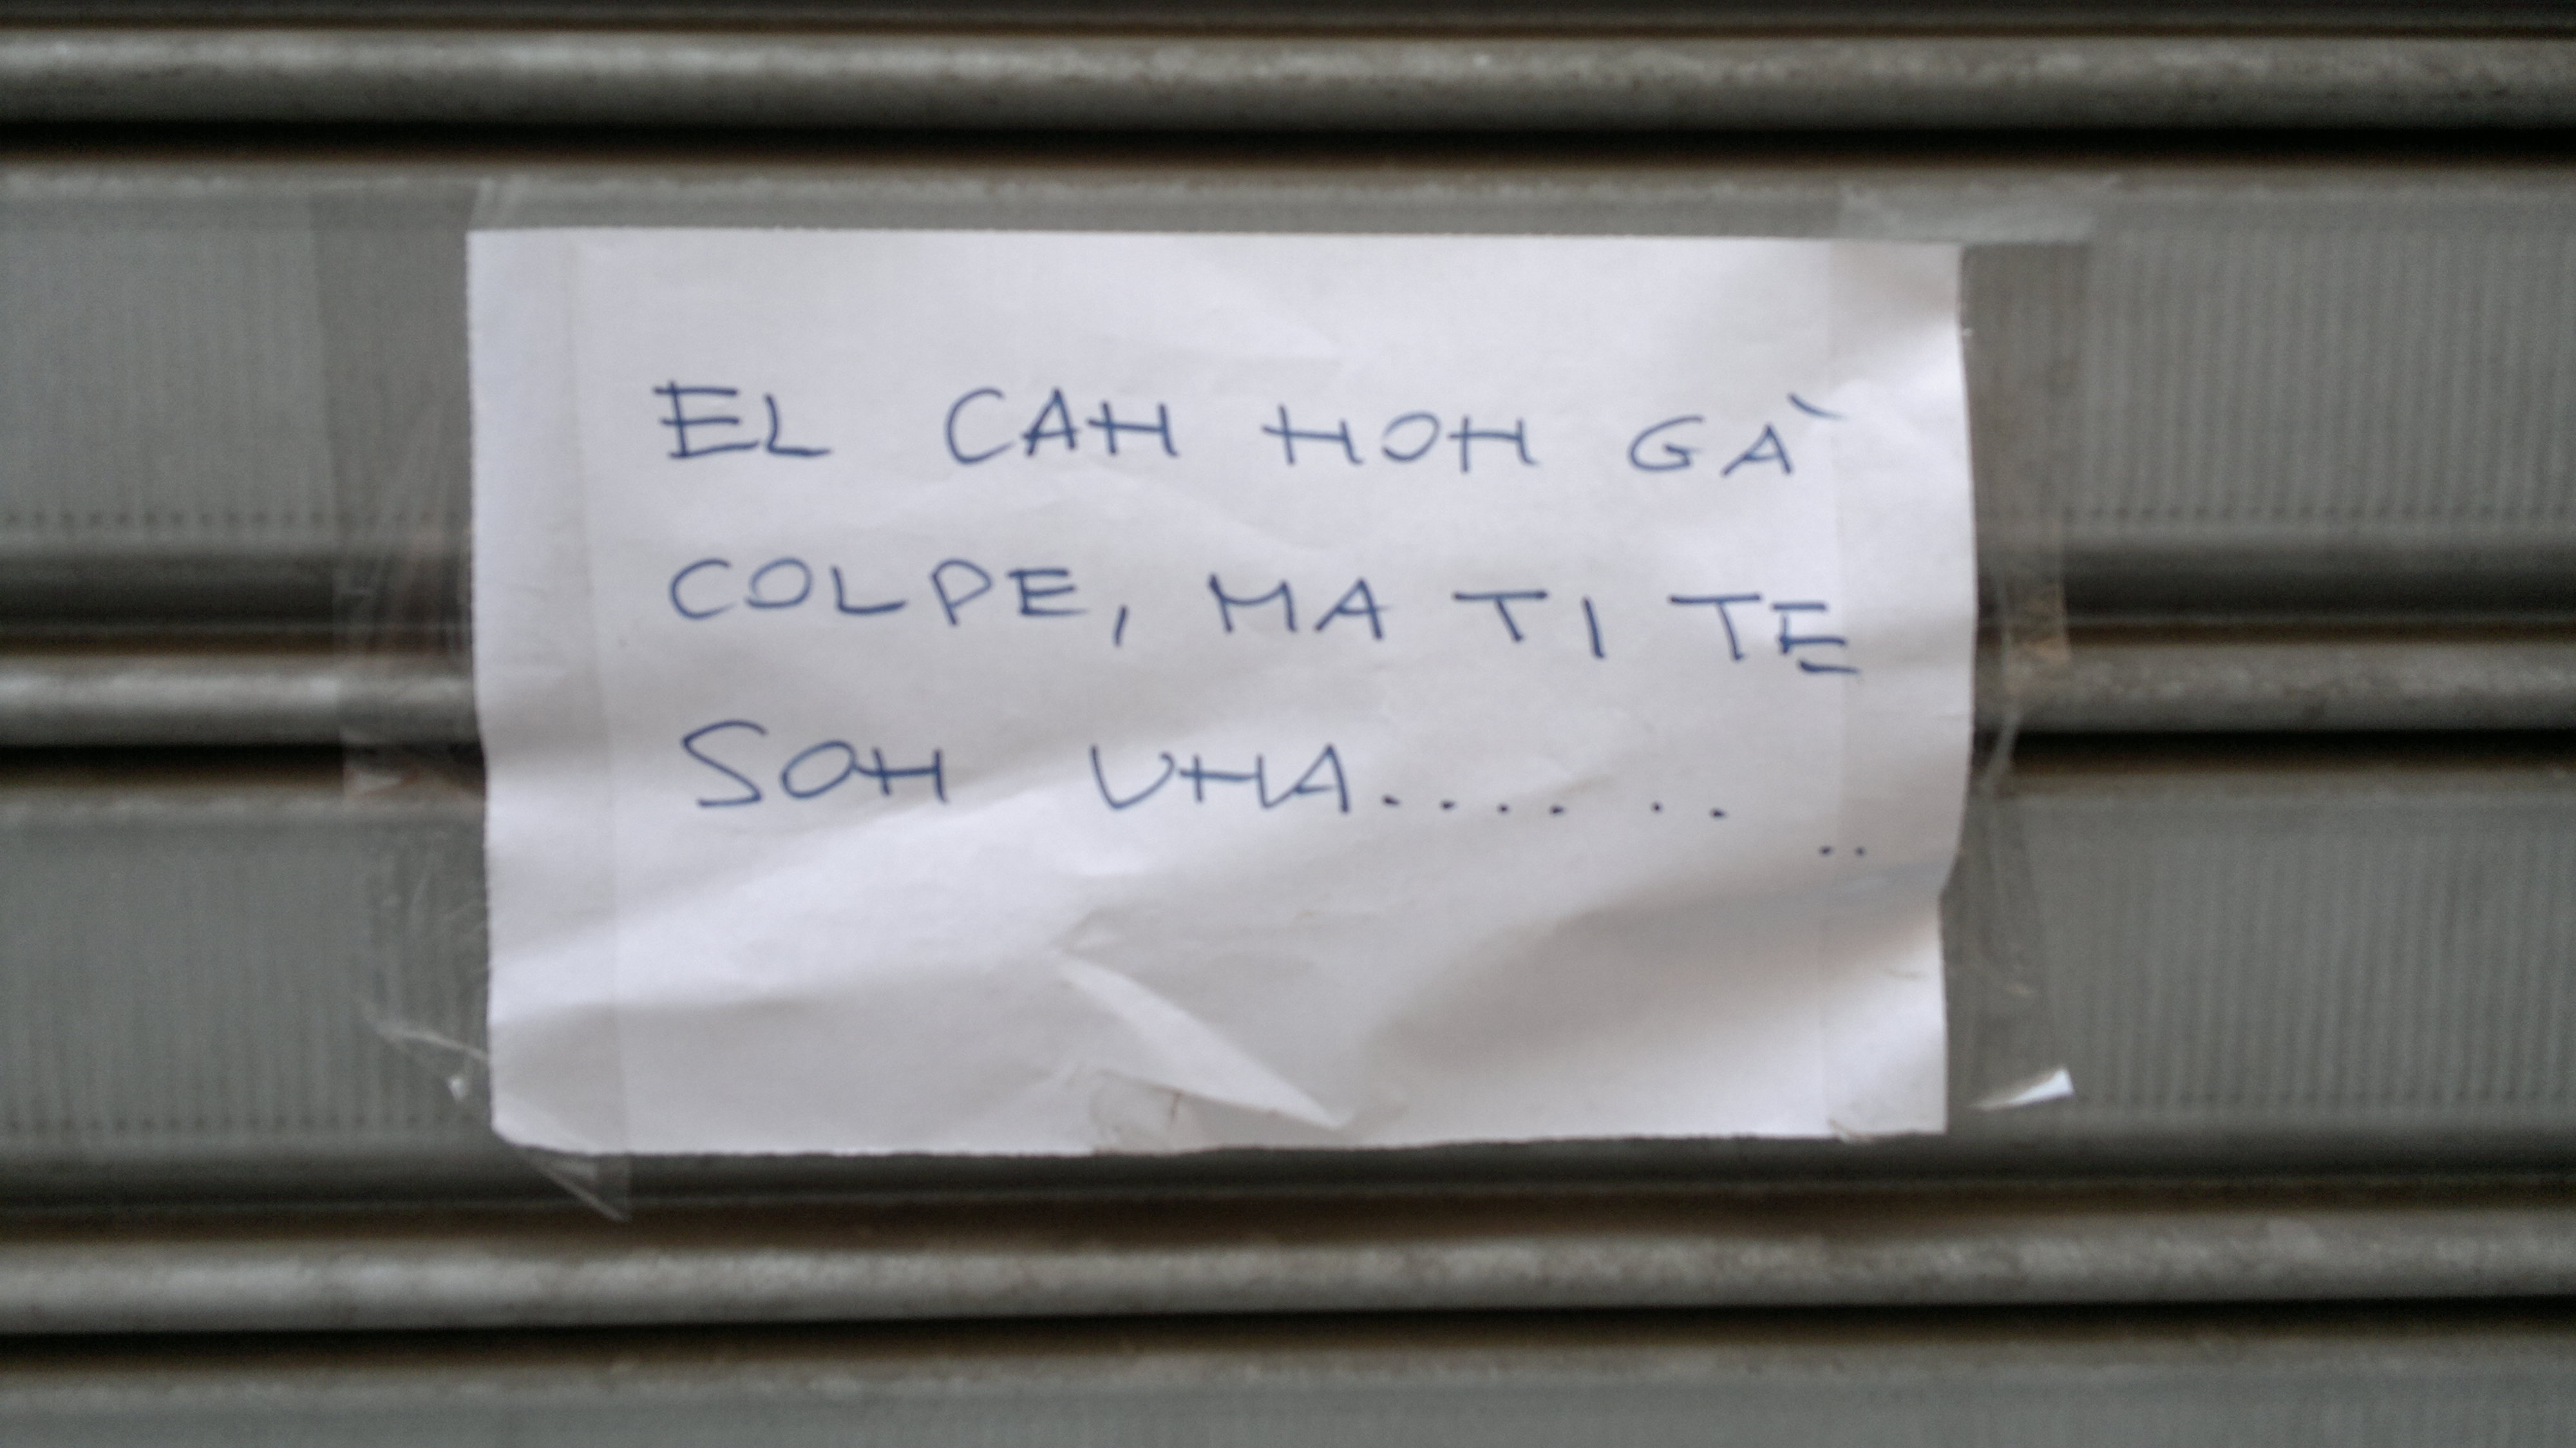 EL CAN NON GÀ
COLPE, MA TI TE
SON UNA........